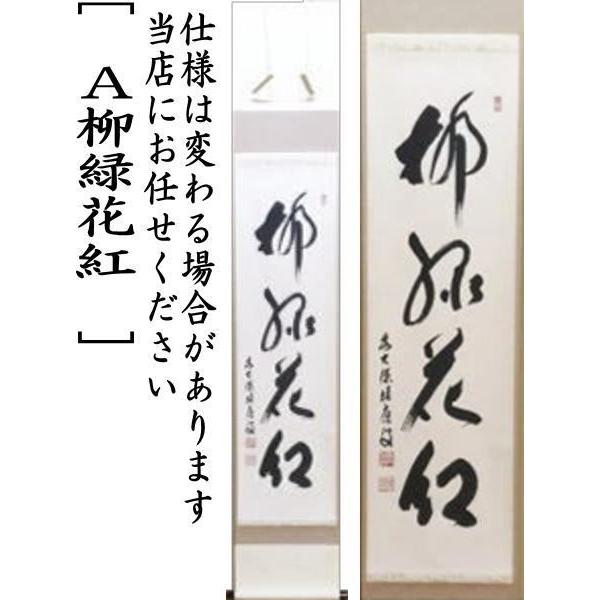 仕様は変わる場合があります
当店にお任せください
［A柳緑花紅］
柳緑花紅
柳緑花紅